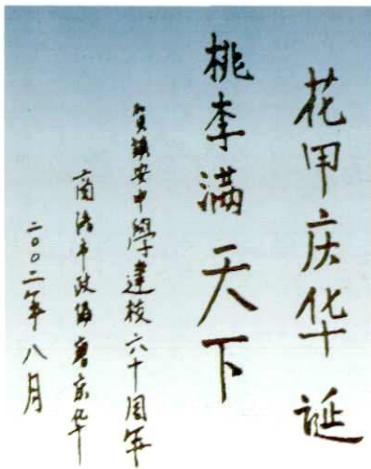 花甲庆华诞
桃李满天下
贺镇安中學建校六十周年
商洛市政协曹京华
二〇〇二年八月